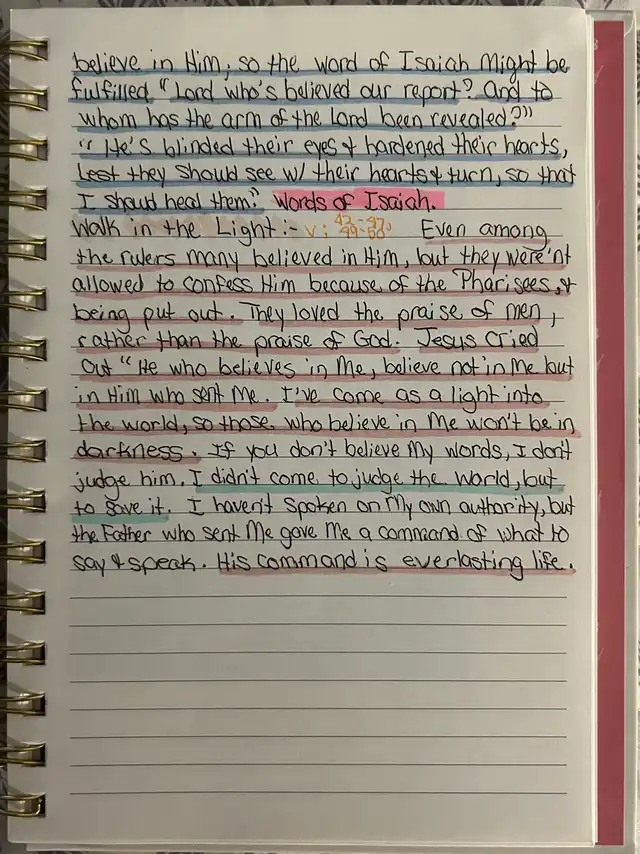 believe in Him; so the word of Isaiah Might be
fulfilled "Lord who's believed our report? And to
whom has the arm of the Lord been revealed?"
"He's blinded their eyes & hardened their hearts,
Lest they should see w/ their hearts & turn, so that
I should heal them." Words of Isaiah.
Walk in the Light :- v: 42-47, 49-50 Even among
the rulers many believed in Him, but they were'nt
allowed to confess Him because of the Pharisees, &
being put out. They loved the praise of men,
rather than the praise of God. Jesus cried
out "He who believes in Me, believe not in Me but
in Him who sent Me. I've come as a light into
the world, so those who believe in Me won't be in
darkness. If you don't believe My words, I don't
judge him. I didn't come to judge the world, but
to save it. I haven't spoken on My own authority, but
the Father who sent Me gave Me a command of what to
say & speak. His command is everlasting life.